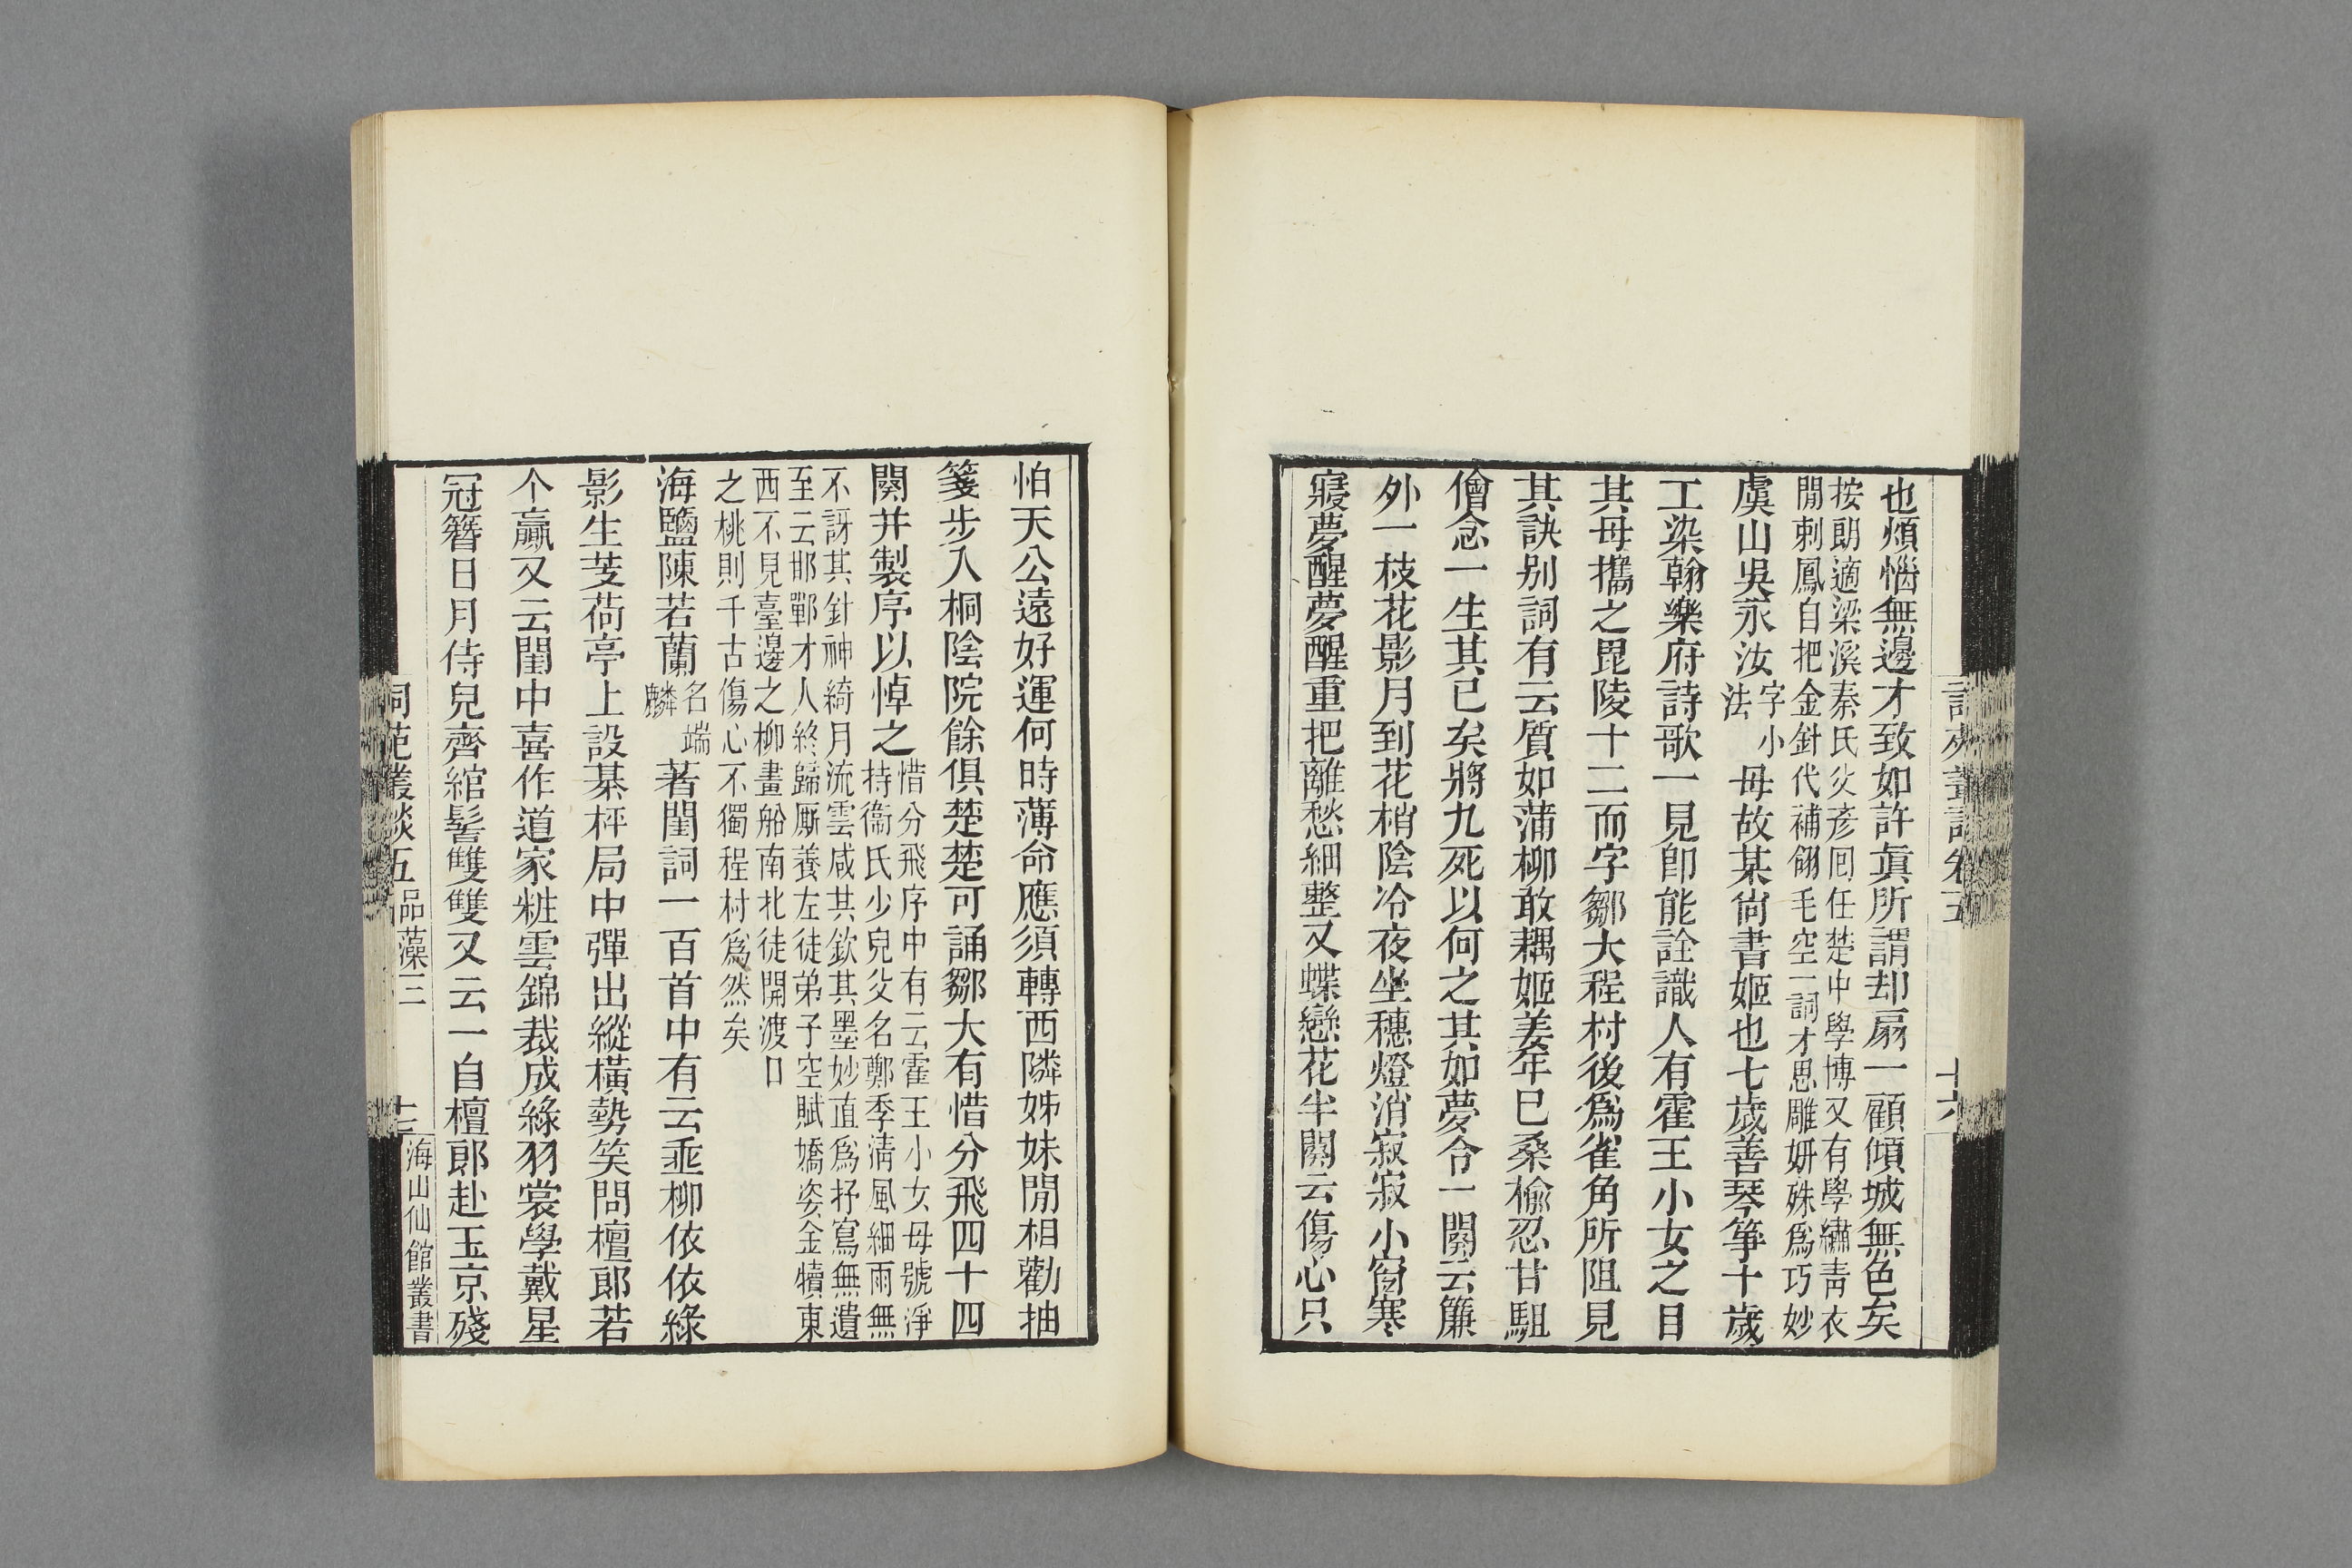 也煩惱無邊才致如許眞所謂却扇一顧傾城無色矣
按朗適梁溪秦氏父彥囘任楚中學博又有學繡靑衣
閒刺鳳自把金針代補翎毛空一詞才思雕妍姝爲巧妙
虞山吳永汝字小法母故某尙書姬也七歲善琴箏十歲
工染翰樂府詩歌一見卽能詮識人有霍王小女之目
其母攜之毘陵十二而字鄒大程村後爲雀角所阻見
其訣別詞有云質如蒲柳敢耦姬姜年已桑楡忍甘駔
儈念一生其已矣將九死以何之其如夢令一闋云簾
外一枝花影月到花梢陰冷夜坐穗燈消寂寂小窗寒
寢夢醒夢醒重把離愁細整又蝶戀花半闋云傷心只
怕天公遠好運何時薄命應須轉西隣姊妹閒相勸抽
箋步入桐陰院餘俱楚楚可誦鄒大有惜分飛四十四
闋幷製序以悼之惜分飛序中有云霍王小女母號淨
持衞氏少兒父名鄭季淸風細雨無
不訝其針神綺月流雲咸其欽其墨妙直爲抒寫無遺
至云邯鄲才人終歸厮養左徒弟子空賦嬌姿金犢東
西不見臺邊之柳畫船南北徒開渡口
之桃則千古傷心不獨程村爲然矣
海鹽陳若蘭名端麟著閨詞一百首中有云垂柳依依綠
影生芰荷亭上設棊枰局中彈出縱橫勢笑問檀郞若
个贏又云閨中喜作道家粧雲錦裁成綠羽裳學戴星
冠簪日月侍兒齊綰髻雙雙又云一自檀郞赴玉京殘
詞苑叢談五 品藻三
海山仙館叢書